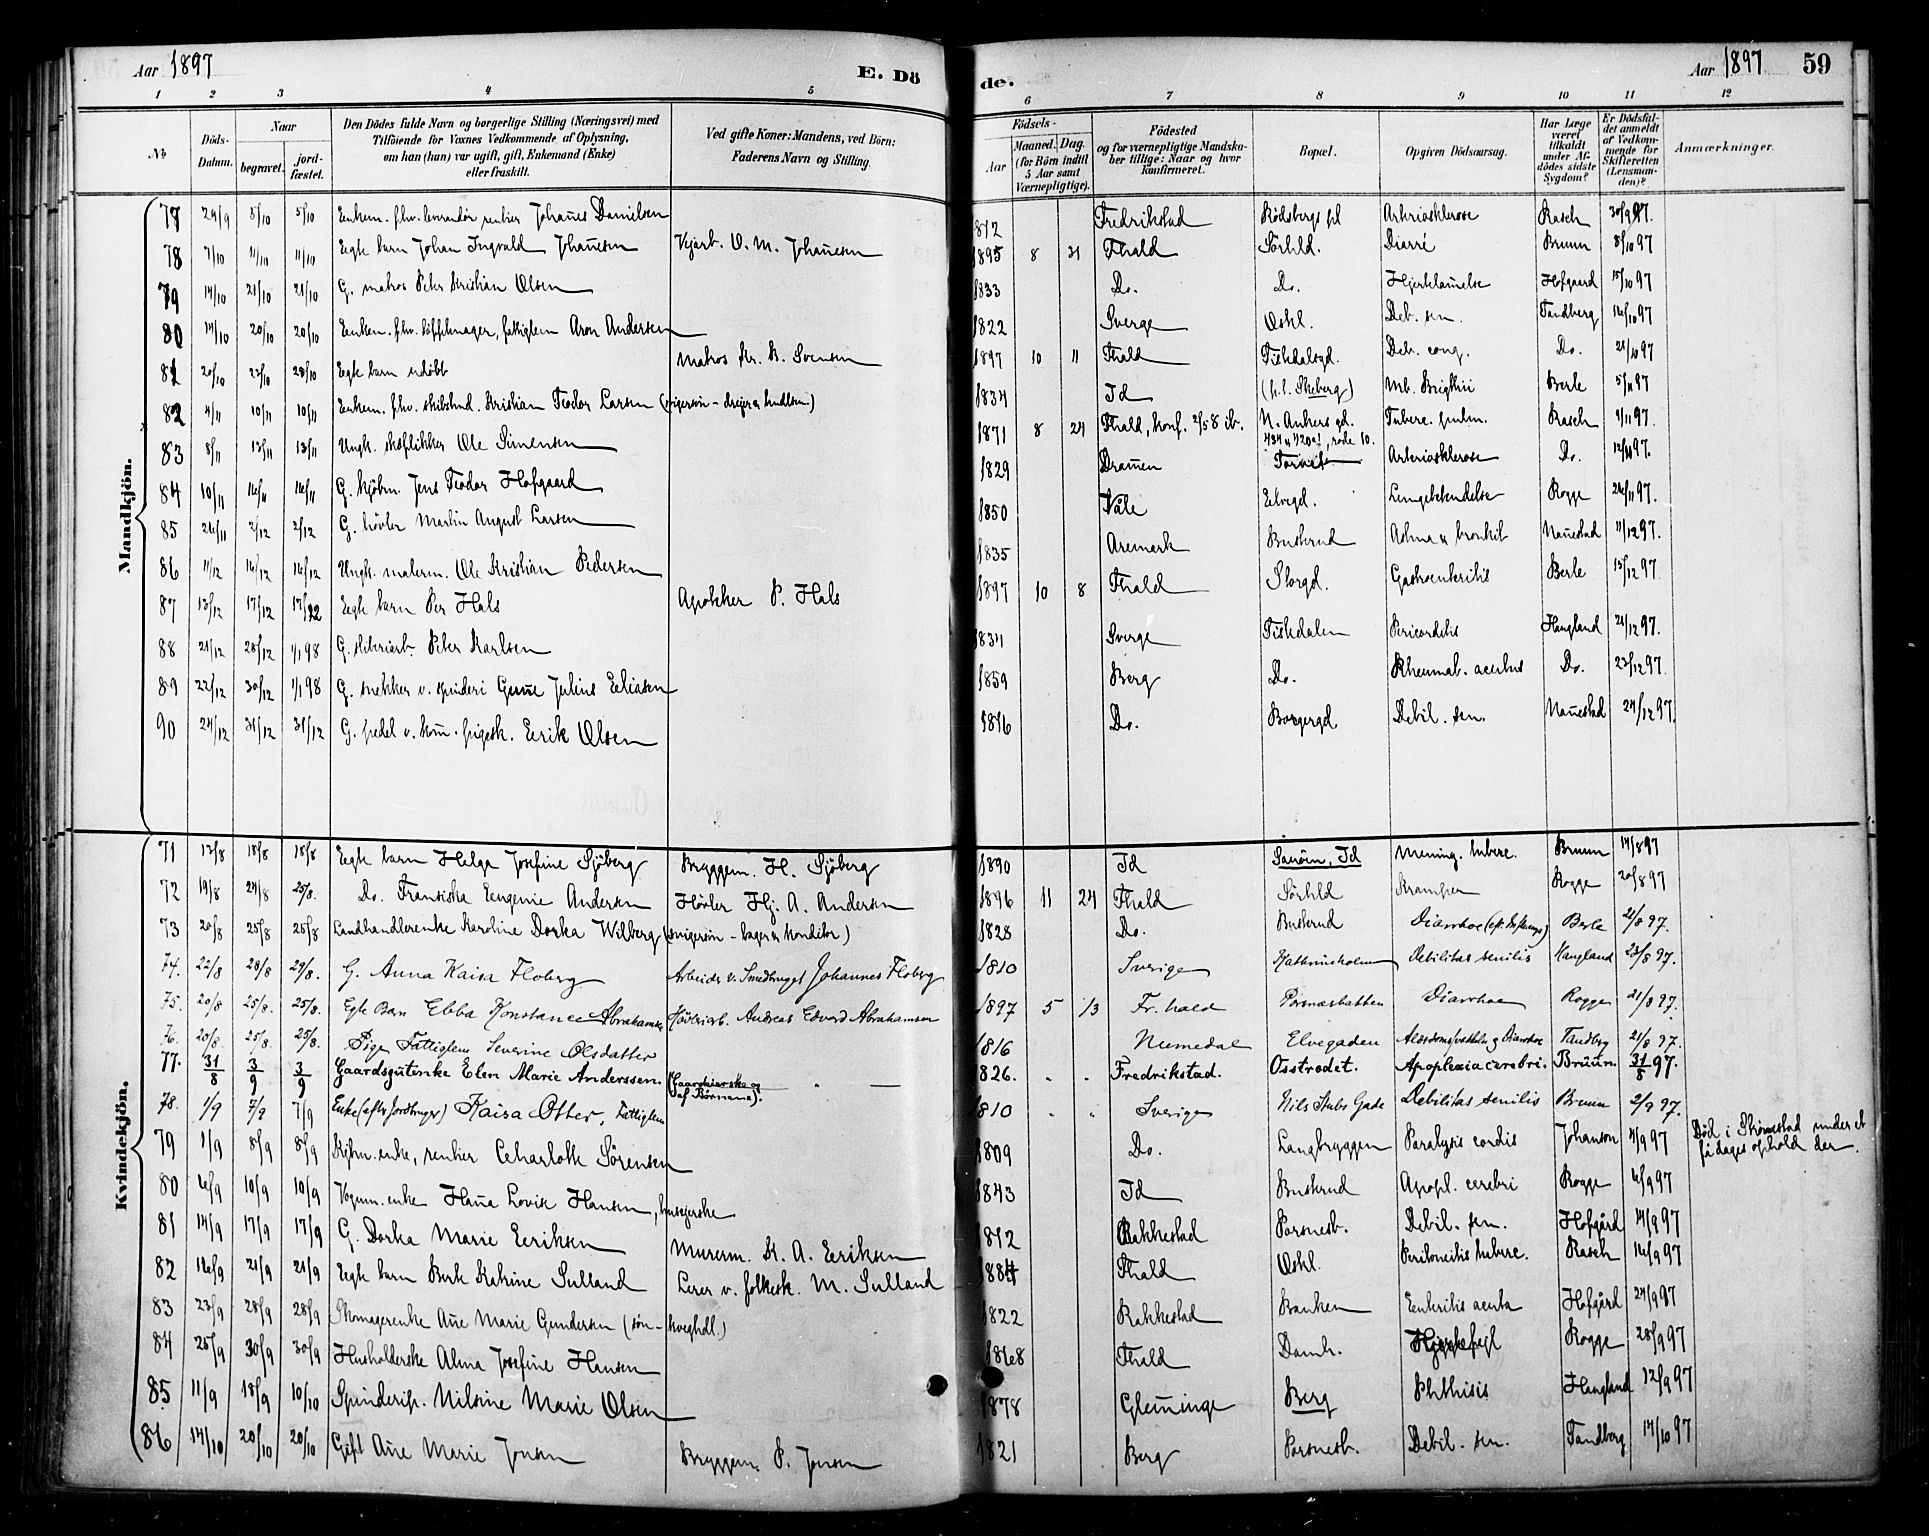 Aar 1897
E. Dö
de.
Aar 1897 59
1 2 3 4 5 6 7 8 9 10 11 12
No
Döds-Datum.
Naar begravet. jordfæstet.
Den Dödes fulde Navn og borgerlige Stilling (Næringsvei) med Tilföiende for Voxnes Vedkommende af Oplysning, om han (hun) var ugift, gift, Enkemand (Enke) eller fraskilt.
Ved gifte Koner: Mandens, ved Börn: Faderens Navn og Stilling.
Födsels- Aar Maaned. Dag. (for Börn indtil 5 Aar samt Værnepligtige).
Födested og for værnepligtige Mandskaber tillige: Naar og hvor konfirmeret.
Bopæl.
Opgiven Dödsaarsag.
Har Læge været tilkaldt under Afdödes sidste Sygdom?
Er Dödsfaldet anmeldt af Vedkommende for Skifteretten (Lensmanden)?
Anmærkninger.
Mandkjön.
77 24/9 5/10 5/10 Enkem. fhv. rentier Johannes Danielsen 1812 Fredrikstad Rödsbergs pl Arteriosklerose Rasch 30/9 97.
78 7/10 11/10 11/10 Egte barn Johan Ingvald Johannesen O. M. Johannesen 1895 8 21 Fhald Sörhld. Diarré Bruun 8/10 97
79 14/10 21/10 21/10 G. matros Peter Kristian Olsen 1833 Do. Do. Hjertelammelse Hofgaard 15/10 97
80 14/10 20/10 20/10 Enkem. fhv. fattiglem Aron Andersen 1822 Sverge Oskl. Deb. sen. Tandberg 16/10 97
81 20/10 23/10 28/10 Egte barn udöbt Matros Kr. B. Svensen 1897 10 11 Fhald Fiskdalsgd. Deb. cong. Do. 21/10 97
82 4/11 10/11 10/11 Enkem. fhv. skibstmd. Kristian Teodor Larsen 1834 Id Mb. Brightii Berle 5/11 97
83 8/11 13/11 13/11 Ungk. skoflikker Ole Simensen 1871 8 24 Fhald, Konf. N. Ankers gd. Tuberc. pulm. Rasch 9/11 97.
84 10/11 16/11 16/11 G. kjöbm. Jens Teodor Hofgaard 1829 Drammen Torvet Arteriosklerose Do. 12/11 97.
85 26/11 2/12 2/12 G. hövler Martin August Larsen 1850 Våle Elvegd. Lungebetendelse Rogge 26/11 97.
86 11/12 16/12 16/12 Ungk. malerm. Ole Kristian Pedersen 1835 Aremark Buskrud Astma & bronkit Nannestad 11/12 97.
87 13/12 17/12 17/12 Egte barn Per Hals Apoteker P. Hals 1897 10 8 Fhald Storgd. Gastroenteritis Berle 15/12 97
88 21/12 28/12 1/1 98 G. sliberiarb. Peter Karlsen 1834 Sverge Fiskdalen Pericarditis Haugland 21/12 97.
89 22/12 30/12 1/1 98 G. snekker v. spinderi Gunne Julius Eliasen 1859 Berg Do. Rheumat. acutus Do. 23/12 97.
90 24/12 31/12 31/12 G. pedel v. kom. pigesk. Eerik Olsen 1816 Do. Borgergd. Debil. sen. Nannestad 24/12 97.
Kvindekjön.
71 13/8 18/8 18/8 Egte barn Helga Josefine Sjöberg Bryggem. H. Sjöberg 1890 Id Sauöen, Id Mening. tuberc. Bruun 14/8 97
72 19/8 24/8 25/8. Do. Fransiska Eugenie Andersen Hövler Hj. A. Andersen 1896 11 24 Fhald Sörhld Kramper Rogge 20/8 97
73 20/8 25/8 25/8 Landhandlerenke Karoline Dorka Wilberg (svigersön - bager & konditor) 1828 Do. Buskrud Diarrhoe Berle 21/8 97.
74. 22/8 28/8 29/8. G. Anna Kaisa Floberg Arbeider v. Smedbruget Johannes Floberg 1810 Sverige Kathrineholm Debilitas senilis Haugland 23/8 97.
75. 20/8 25/8. 25/8. Egte Barn Ebba Konstance Abrahamsen Höverarb. Andreas Edvard Abrahamsen 1897 5 13 Fr.hald Porsnæsbakken Diarrhoe Rogge 21/8 97.
76. 20/8. 25/8. 25/8. Pige Fattiglem Severine Olsdatter 1816 Numedal Elvegaden Alderdomssvakhet & Diarrhoe Tandberg 21/8 97.
77. 31/8 3/9 3/9 Gaardsgutenke Elen Marie Anderssen. (Gaardeierske og af Börnene). 1826. Fredrikstad. Osstrodet. Apoplexia cerebri. Brüün. 31/8 97.
78. 1/9 7/9 7/9 Enke (efter Jordbruger) Kaisa Otter, Fattiglem 1810 Sverige Nils Stubs Gade Debilitas senilis Bruun 2/9 97.
79 1/9 8/9 8/9 Kjbm. enke, rentier Charlotte Sörensen 1809 Do. Langbryggen Paralysis cordis Johanson 4/9 97 Död i Strömstad under et få dages ophold der.
80 6/9 10/9 10/9 Vognm. enke Hanna Lovise Hansen, huseierske 1843 Id Buskrud Apopl. cerebri Rogge 6/9 97
81 14/9 17/9 17/9 G. Dorka Marie Eeriksen Murerm. K. A. Eeriksen 1812 Rakkestad Porsnesb. Debil. sen. Hofgård 14/9 97
82 16/9 21/9 21/9 Egte barn Berte Katrine Sulland Lerer v. folkesk. M. Sulland 1884 Fhald Oskl. Peritoneitis tuberc. Rasch 16/9 97
83 23/9 28/9 28/9 Skomagerenke Anne Marie Gundersen (sön - kveghdl.) 1822 Rakkestad Banken Enteritis acuta Hofgård 24/9 97
84 25/9 30/9 30/9 Husholderske Alma Josefine Hansen 1868 Fhald Damh. Hjertefejl Rogge 28/9 97
85 11/9 18/9 10/10 Spinderip. Nilsine Marie Olsen 1878 Glemminge Berg Phthisis Haugland 12/9 97
86 14/10 20/10 20/10 Gift Anne Marie Jonsen Bryggem. P. Jonsen 1821 Berg Porsnesb. Debil. sen. Tandberg 14/10 97